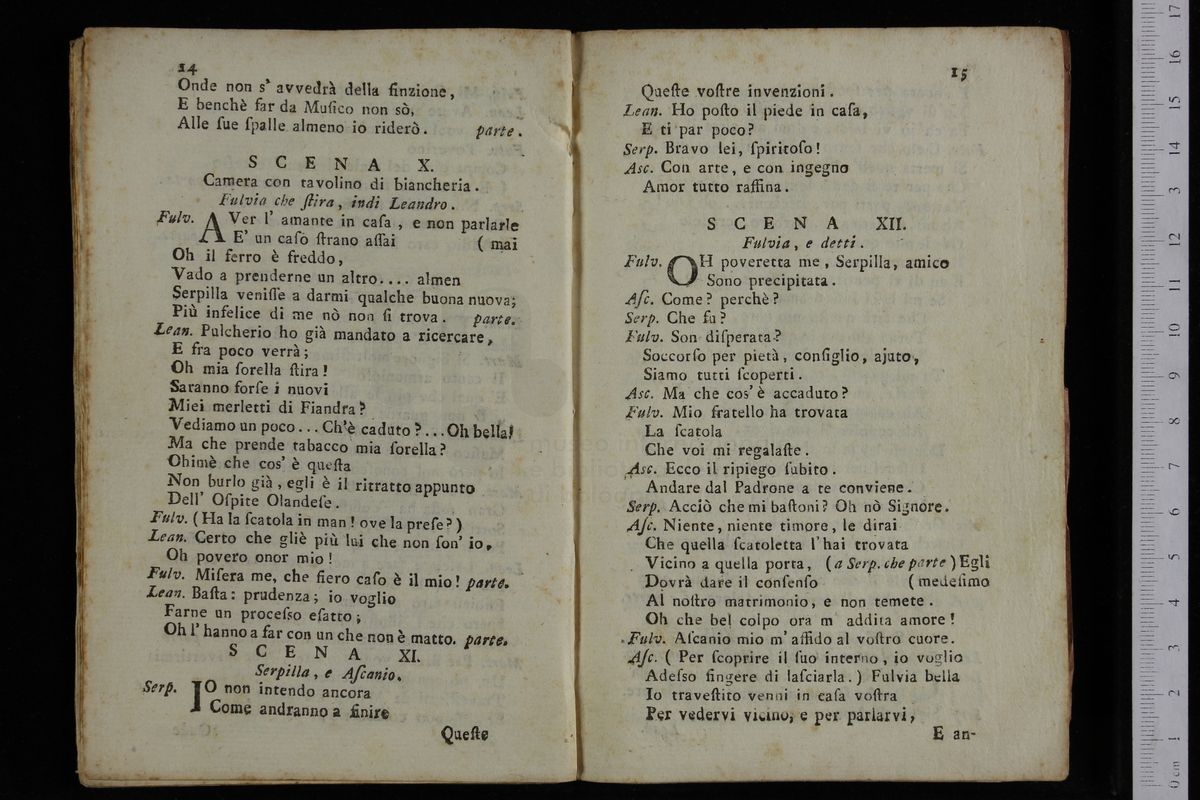 14
Onde non s' avvedrà della finzione,
E benchè far da Muſico non sò,
Alle ſue ſpalle almeno io riderò. parte.
SCENA X.
Camera con tavolino di biancheria.
Fulvia che ſtira, indi Leandro.
Fulv. AVer l' amante in caſa, e non parlarle
E' un caſo ſtrano aſſai ( mai
Oh il ferro è freddo,
Vado a prenderne un altro.... almen
Serpilla veniſſe a darmi qualche buona nuova;
Più infelice di me nò non ſi trova. parte.
Lean. Pulcherio ho già mandato a ricercare,
E fra poco verrà;
Oh mia ſorella ſtira!
Saranno forſe i nuovi
Miei merletti di Fiandra?
Vediamo un poco... Ch'è caduto?... Oh bella!
Ma che prende tabacco mia ſorella?
Ohimè che cos' è queſta
Non burlo già, egli è il ritratto appunto
Dell' Oſpite Olandeſe.
Fulv. (Ha la ſcatola in man! ove la preſe?)
Lean. Certo che gliè più lui che non ſon' io,
Oh povero onor mio!
Fulv. Miſera me, che fiero caſo è il mio! parte.
Lean. Baſta: prudenza; io voglio
Farne un proceſso eſatto;
Oh l' hanno a far con un che non è matto. parte.
SCENA XI.
Serpilla, e Aſcanio.
Serp. IO non intendo ancora
Come andranno a finire
Queſte
15
Queſte voſtre invenzioni.
Lean. Ho poſto il piede in caſa,
E ti par poco?
Serp. Bravo lei, ſpiritoſo!
Asc. Con arte, e con ingegno
Amor tutto raffina.
SCENA XII.
Fulvia, e detti.
Fulv. OH poveretta me, Serpilla, amico
Sono precipitata.
Aſc. Come? perchè?
Serp. Che fu?
Fulv. Son diſperata?
Soccorſo per pietà, conſiglio, ajuto,
Siamo tutti ſcoperti.
Asc. Ma che cos' è accaduto?
Fulv. Mio fratello ha trovata
La ſcatola
Che voi mi regalaſte.
Asc. Ecco il ripiego ſubito.
Andare dal Padrone a te conviene.
Serp. Acciò che mi baſtoni? Oh nò Signore.
Aſc. Niente, niente timore, le dirai
Che quella ſcatoletta l'hai trovata
Vicino a quella porta, (a Serp. che parte) Egli
Dovrà dare il conſenſo ( medeſimo
Al noſtro matrimonio, e non temete.
Oh che bel colpo ora m' addita amore!
Fulv. Aſcanio mio m' affido al voſtro cuore.
Aſc. ( Per ſcoprire il ſuo interno, io voglio
Adeſso fingere di laſciarla.) Fulvia bella
Io traveſtito venni in caſa voſtra
Per vedervi vicino, e per parlarvi,
E an-